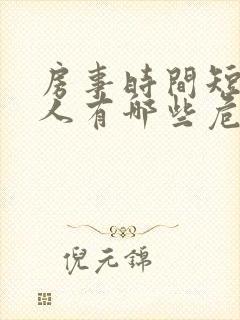 房事時間短
人有哪些危
倪元錦